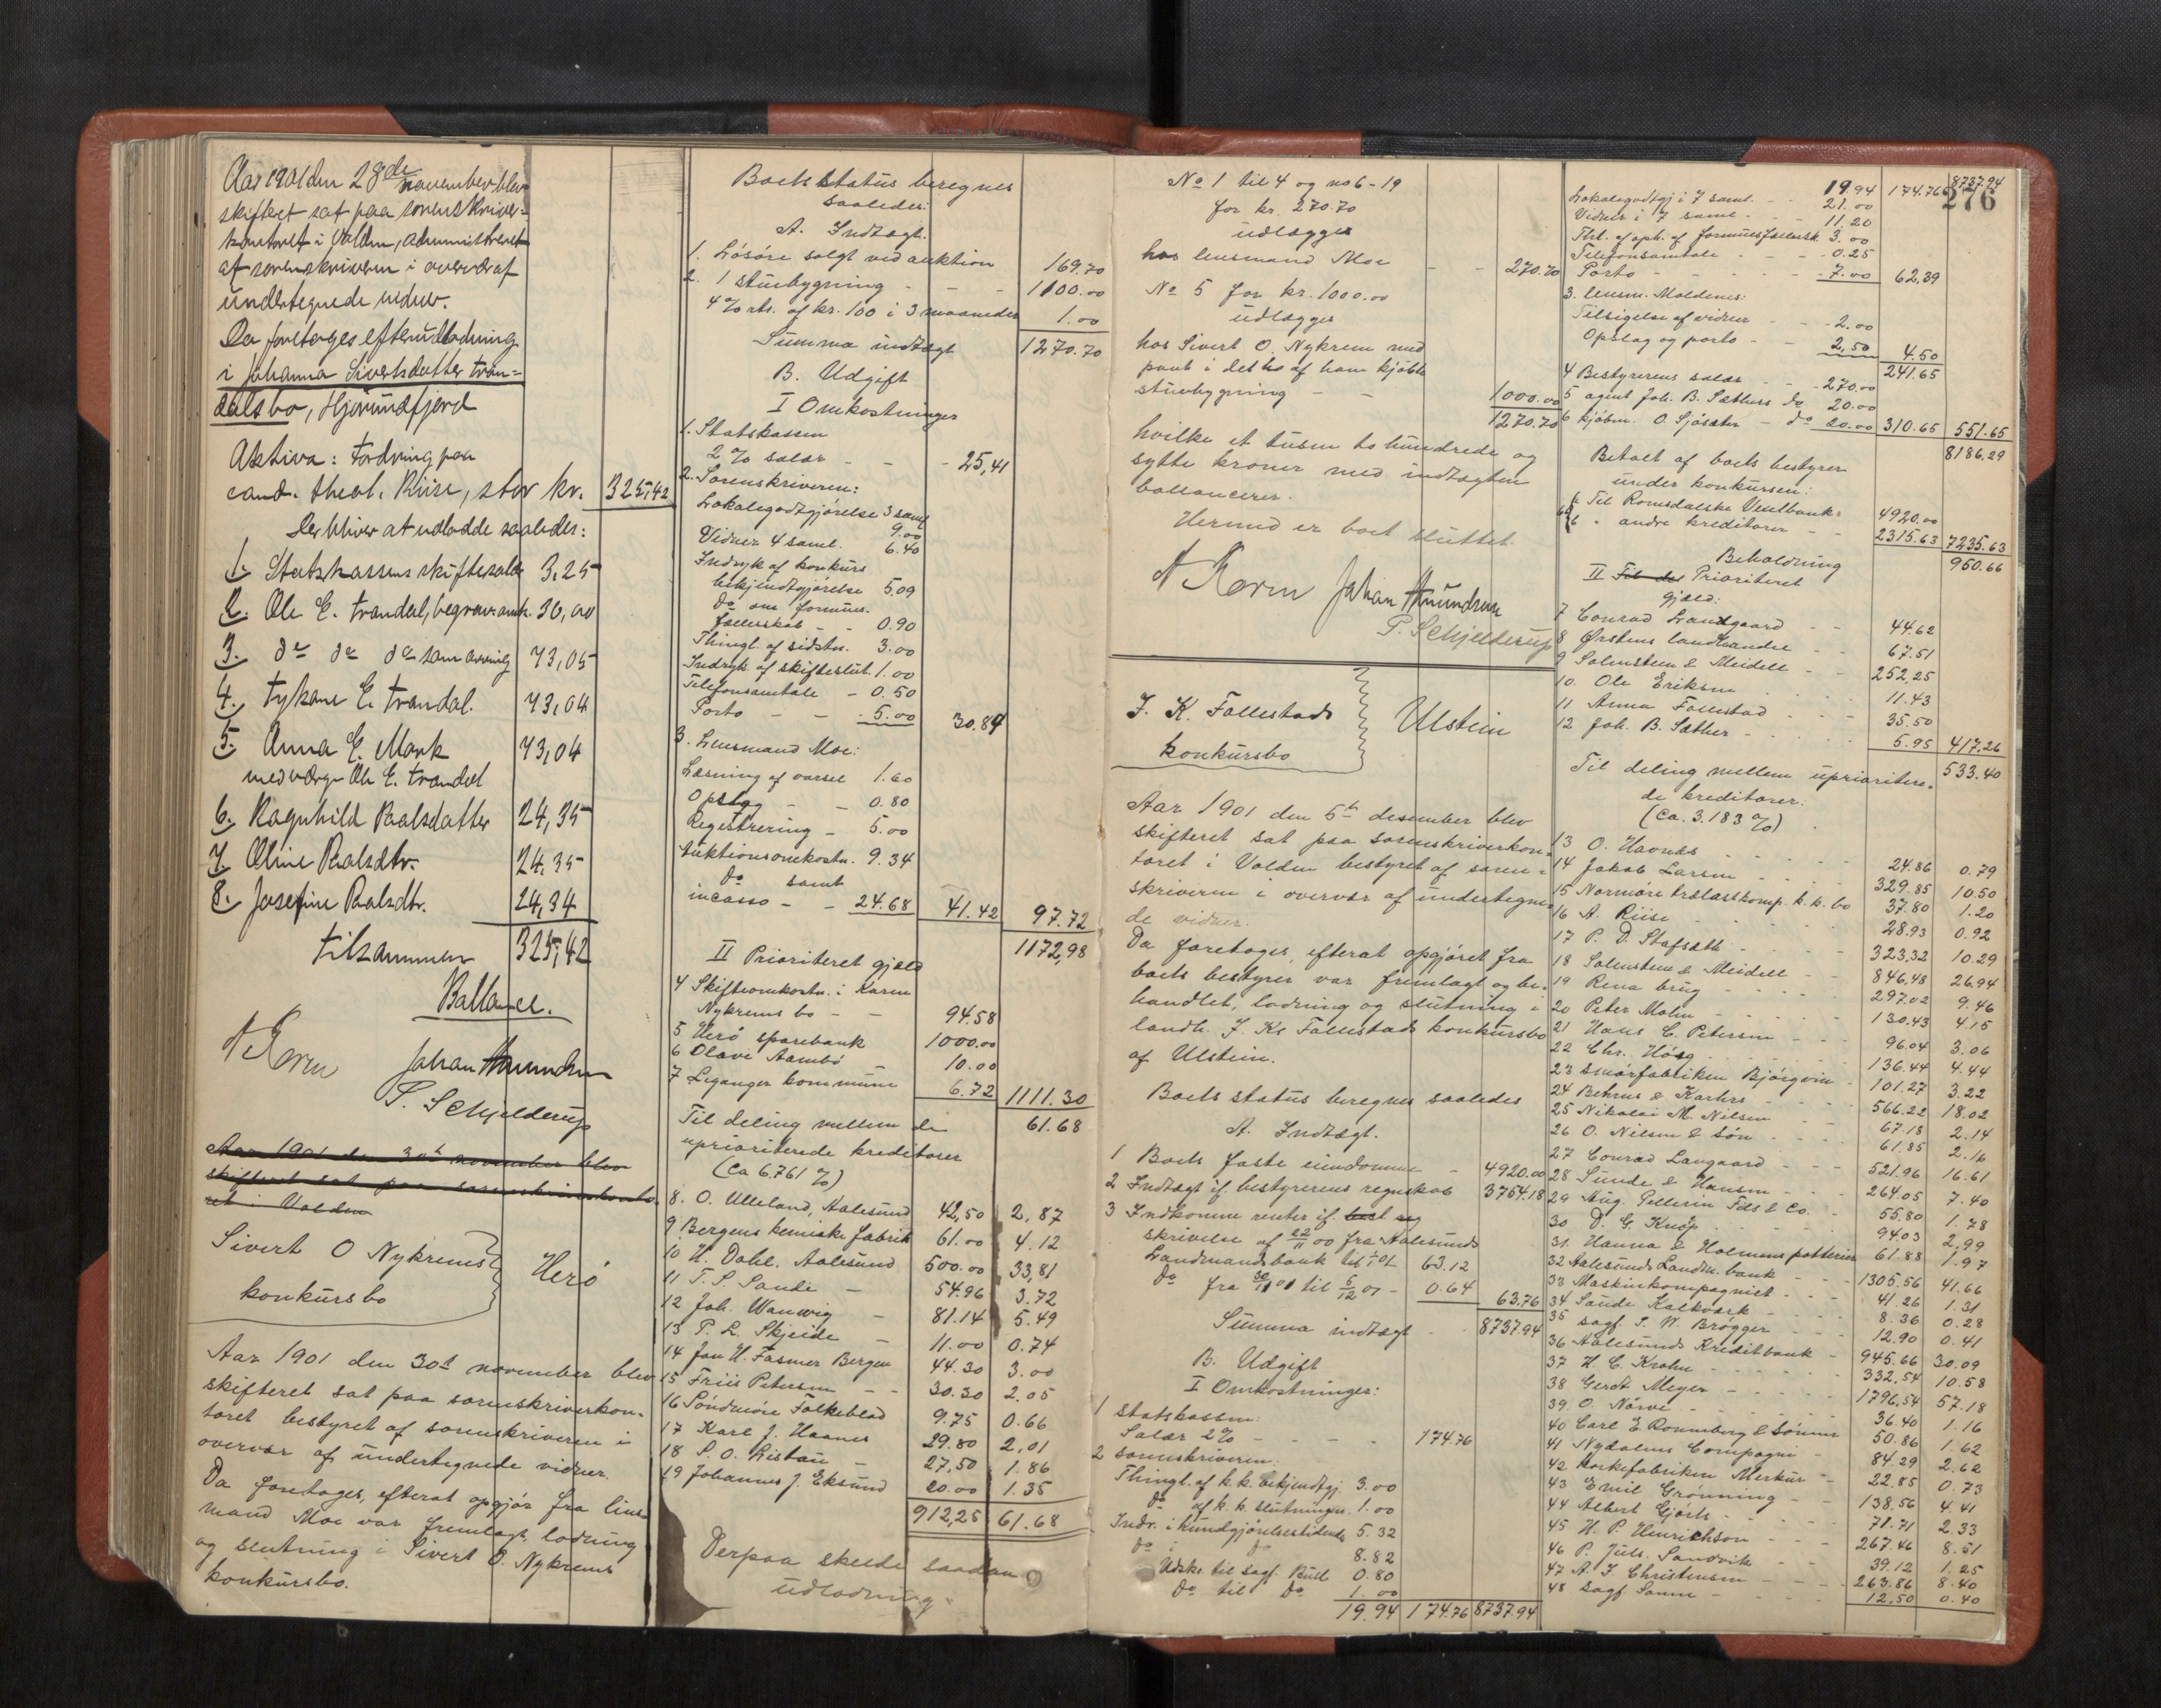 Aar 1901 den 28de november blev
skiftet sat paa sorenskriver-
kontoret i Volden, administreret
af sorenskriveren i overvær af
undertegnede vidner.
Da foretoges efterudlodning
i Johanna Sivertsdatter Tran-
dalsbo, Hjørundfjord
Aktiva: Fordring paa
cand. theol. Riise, stor kr. 325,42
Der bliver at udlodde saaledes:
1. Statskassens skiftesalær 3,25
2. Ole E. Trandal, begravomk. 30,00
3. do do do som arving 73,05
4. Tykane E. Trandal. 73,04
5. Anna E. Mork 73,04
med værge Ole E. Trandal
6. Ragnhild Paalsdatter 24,35
7. Oline Paalsdtr. 24,35
8. Josefine Paalsdtr. 24,34
tilsammen 325,42
Ballance.
Johan Amundsen
P. Schjelderup
Aar 1901 den 30te november blev
skifteret sat paa sorenskriverkonto
ret i Volden
Sivert O Nykrems
konkursbo
Herö
Aar 1901 den 30te november blev
skifteret sat paa sorenskriverkon-
toret bestyret af sorenskriveren i
overvær af undertegnede vidner.
Da foretages, efterat opgjör fra lens-
mand Moe var fremlagt lodning
og slutning i Sivert O. Nykrems
konkursbo.
Boets status beregnes
saaledes:
A. Indtægt.
1. Lösöre solgt ved auktion 169.70
2. 1 stuebygning - - - 1100.00
4% rts. af kr. 100 i 3 maaneder 1.00
Summa indtægt 1270.70
B. Udgift
I Omkostninger
1. Statskassen
2% salær - - - 25,41
2. Sorenskriveren:
Lokalegodtgjörelse 3 saml
9.00
Vidner 4 saml. 6.40
Indryk af konkurs
bekjendtgjörelse 5.09
do om formues-
fællesskab - - 0.90
Thingl. af sidstn. 3.00
Indryk. af skifteslut. 1.00
Telefonsamtale - 0.50
Porto - - - 5.00 30.89
3. Lensmand Moe:
Læsning af varsel 1.60
Opslag - - 0.80
Registrering - 5.00
Auktionsomkostn. 9.34
do samt
incasso - - 24.68 41.42 97.72
1172,98
II Prioriteret gjæld
4 Skifteomkostn. i Karen
Nykrems bo - - 94.58
5 Herö sparebank 1000.00
6 Olave Aambö - 10.00
7 Leganger kommune 6.72 1111.30
Til deling mellem de 61.68
uprioriterede kreditorer
(Ca 6.761 %)
8. O. Ulleland, Aalesund 42,50 2,87
9 Bergens kemiske fabrik 61.00 4.12
10 H. Dahl, Aalesund 500.00 33,81
11 T. S. Sande - 54.96 3.72
12 Joh. Wanvig - 81.14 5.49
13 P. L. Skjeide - 11.00 0.74
14 Jan H. Fasmer Bergen 44.30 3.00
15 Friis Petersen - - 30.30 2.05
16 Söndmöre Folkeblad 9.75 0.66
17 Karl J. Haanes 29.80 2,01
18 P. O. Ristau - 27,50 1.86
19 Johannes J. Eksund 20.00 1.35
912,25 61.68
Derpaa skeede saadan
udlodning
No 1 til 4 og no 6-19
for kr. 270.70
udlægges
hos lensmand Moe - - 270.70
No 5 for kr. 1000.00
udlægges
hos Sivert O. Nykrem med
pant i det ho af ham kjöbte
stuebygning - - 1000.00
1270.70
hvilke et tusen to hundrede og
sytti kroner med indtægten
ballancerer.
Hermed er boet sluttet.
Johan Amundsen
P. Schjelderup
J. K. Fallestads
konkursbo
Ulstein
Aar 1901 den 5te desember blev
skifteret sat paa sorenskriverkon-
toret i Volden bestyret af soren-
skriveren i overvær af undertegne
de vidner.
Da foretages, efterat opgjöret fra
boets bestyrer var fremlagt og be-
handlet, lodning og slutning i
landh. J. Ks Fallestads konkursbo
af Ulstein.
Boets status beregnes saaledes
A. Indtægt.
1 Boets faste eiendomme - 4920.00
2 Indtægt if. bestyrerens regnskab 3754.18
3 Indkomne renter if.
skrivelse af 22/11 00 fra Aalesunds
Landmandsbank til 63.12
do fra 30/11 01 til 5/12 01 - 0.64
63.76
Summa indtægt - - 8737.94
B. Udgift
I Omkostninger:
1 Statskassen:
Salær 2% - - - - 174.76
2 sorenskriveren
Thingl. af k.k. bekjendtgj. 3.00
do af k.b slutningen. 1.00
Indr. i kundgjörelsestidende 5.32
do i do 8.82
Udskr. til sagf. Bull 0.80
do til do 1.00
19.94 174.76 8737.94
276
19.94 174.76 8737.94
Lokalegodtgj i 7 saml. - - 21.00
Vidner i 7 saml. - - 11,20
Thl. af oph. af formuesfællessk. 3.00
Telefonsamtale - - 0.25
Porto - - - - 7.00 62,39
3. lensm. Moldenes:
Tilsigelse af vidner - - 2.00
Opslag og porto - - 2,50 4.50
241.65
4 Bestyrerens salær - - 270.00
5 agent Joh. B. Sæthers do 20.00
6 kjöbm. O. Sjösæter - do 20.00 310.65 551.65
8186.29
Betalt af boets bestyrer
under konkursen:
Til Romsdalske Vexelbank: 4920.00
" andre kreditorer - - 2315.63 7235.63
Beholdning 950.66
II Prioriteret
gjæld:
7 Conrad Langaard - - 44.62
8 Ørstens landhandel - - 67.51
9 Salvesen & Meidell - - 252,25
10. Ole Eriksen 11.43
11 Anna Fallestad - - - 35.50
12 Joh. B. Sæther - - 5.95 417.26
Til deling mellem uprioritere- 533.40
de kreditorer:
(Ca. 3.183 %)
13 O. Havnæs 24.86 0.79
14 Jakob Larsen 329.85 10.50
15 Normöre trælastkomp. k.k. bo 37.80 1.20
16 A. Riise 28.93 0.92
17 P. D. Stafseth 323,32 10.29
18 & Meidell 846,48 26.94
19 Rena brug 297.02 9.46
20 Peter Molm 130.43 4.15
21 Hans C. Petersen 96.04 3.06
22 Chr. Höeg 136.44 4.44
23 Smörfabriken Björgvin 101.27 3.22
24 Behrens & Karhrs 566.22 18.02
25 Nikolai M. Nilsen 67.18 2.14
26 O. Nilsen & Sön 61.85 2.16
27 Conrad Langaard - - - 521.96 16.61
28 Sunde & Hansen 264.05 7.40
29 Aug. Pellerin Fils & Co. - 55.80 1.78
30 D. G. Knöp 94.03 2,99
31. Hanna & Holmens potterier 61.88 1.97
32 Aalesunds Landm. bank 1305.56 41.66
33 Maskinkompagniet 41.26 1.31
34 Sande Kalkværk 8.36 0.28
35 sagf. T. W. Brögger 12.90 0.41
36 Aalesunds Kreditbank - 945.66 30.09
37 H. C. Krohn 332,54 10.58
38 Gerdt Meyer 1796,54 57.18
39 O. Nörve 36.40 1.16
40 Carl E. Ronneberg & Sönner 50.86 1.62
41 Nydalens Compagni - 84.29 2.62
42 Korkefabriken Merkur 22.85 0.73
43 Emil Grönning 138.56 4.41
44 Albert Gjörts 71.71 2.33
45 H. P. Henrichson 267.46 8.51
46 P. Juls. Sandvik 39.12 1.25
47 A. F. Christensen 263.86 8.40
48 sagf. Sanne 12,50 0.40